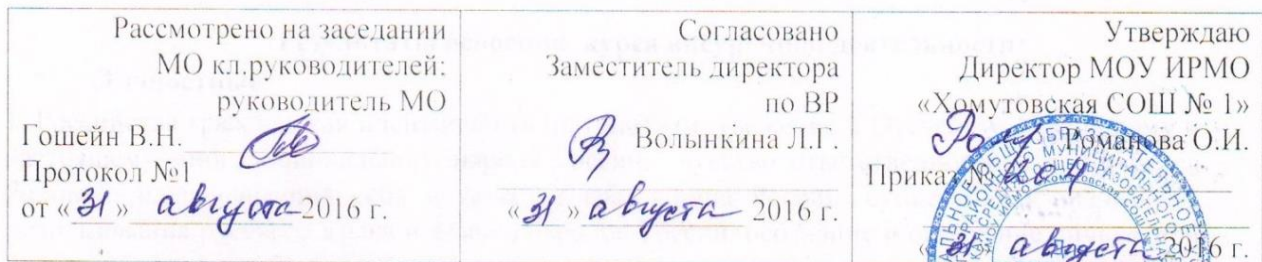 Рассмотрено на заседании
МО кл.руководителей:
руководитель МО
Гошейн В.Н.
Протокол №1
от «31» августа 2016 г.
Согласовано
Заместитель директора
по ВР
Волынкина Л.Г.
«31» августа 2016 г.
Утверждаю
Директор МОУ ИРМО
«Хомутовская СОШ № 1»
Романова О.И.
Приказ № 204
«31» августа 2016 г.